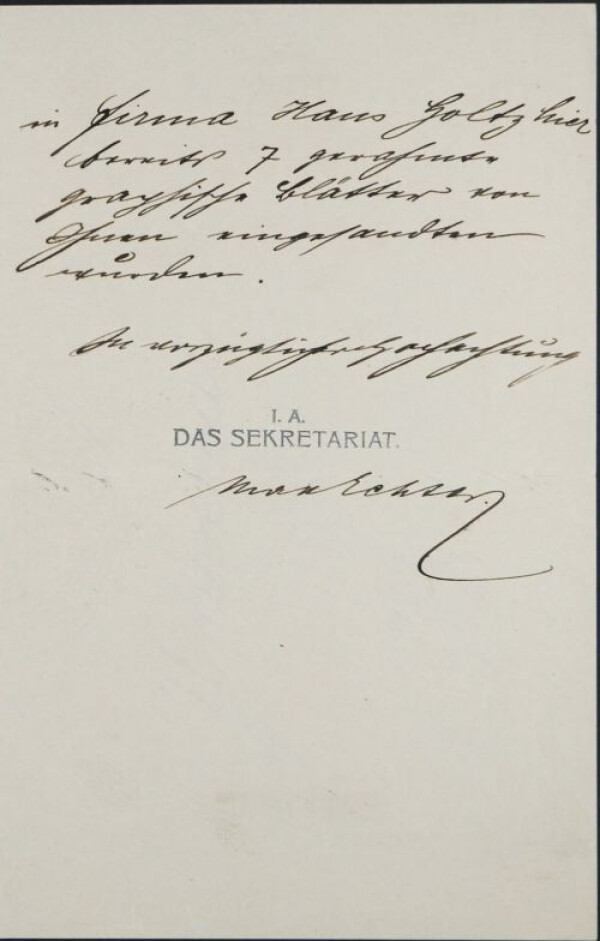 in Firma Hans Goltz hier
bereits 7 gerahmte
graphische Blätter von
Ihnen eingesandten
wurden.
In vorzüglicher Hochachtung
I. A.
DAS SEKRETARIAT.
Max Echter